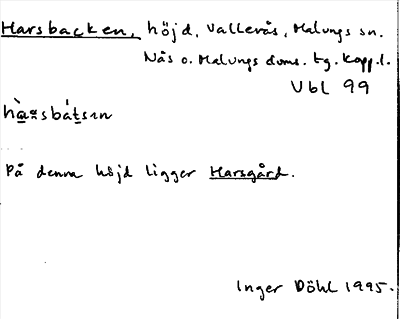 Harsbacken, höjd, Vallerås, Malungs sn.
Nås o. Malungs doms. tg. Kopp.l.
Vbl 99
På denna höjd ligger Harsgård.
Inger Döhl 1995.